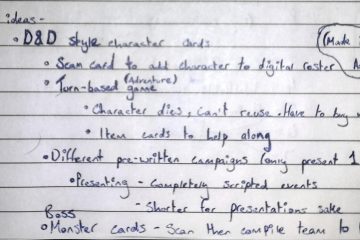 ideas -
• D&D style character cards
(Made
• Scan card to add character to digital roster
• Turn-based (Adventure) game
• Character dies, can't reuse. Have to buy
• Item cards to help along
• Different pre-written campaigns (only present 1
• Presenting - Completely scripted events
- Shorter for presentations sake
Boss
• Monster cards - Scan then compile team to